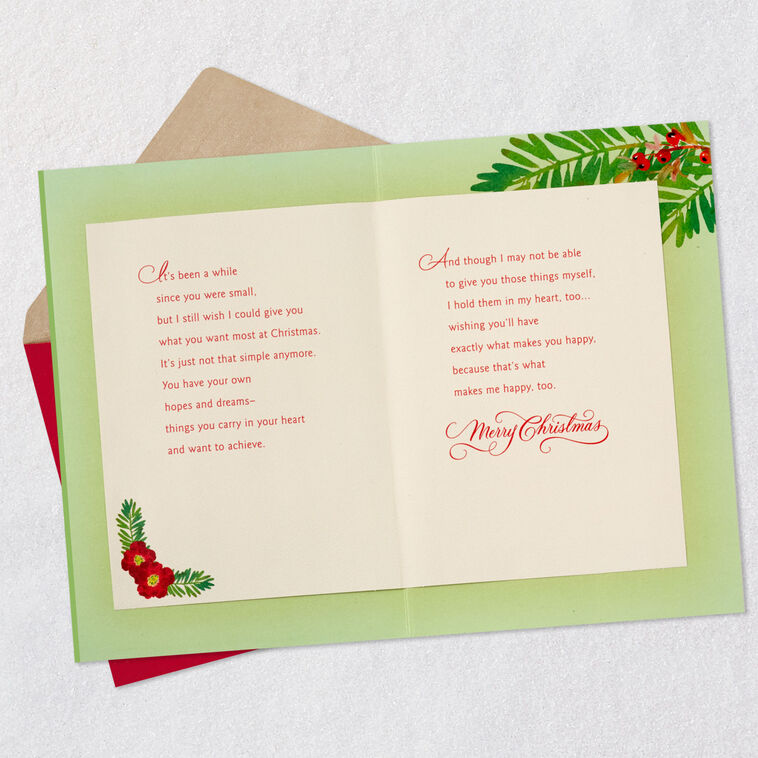 It's been a while
since you were small,
but I still wish I could give you
what you want most at Christmas.
It's just not that simple anymore.
You have your own
hopes and dreams–
things you carry in your heart
and want to achieve.
And though I may not be able
to give you those things myself,
I hold them in my heart, too...
wishing you'll have
exactly what makes you happy,
because that's what
makes me happy, too.
Merry Christmas